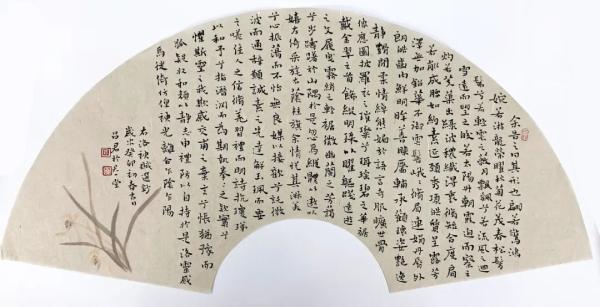 余告之曰其形也翩若驚鴻
婉若游龍榮曜秋菊華茂春松髣
髴兮若輕雲之蔽月飄颻兮若流風之迴
雪遠而望之皎若太陽升朝霞迫而察之
灼若芙蕖出綠波穠纖得衷脩短合度肩
若削成腰如約素延頸秀項皓質呈露芳
澤無加鉛華不御雲髻峨峨脩眉連娟丹唇外
朗皓齒內鮮明眸善睞靨輔承顴瓌姿艷逸
靜體閑柔情綽態媚於語言奇服曠世骨
像應圖披羅衣之璀璨兮珥瑤碧之華裾
戴金翠之首飾綴明珠以曜軀踐遠遊
之文履曳霧綃之輕裾微幽蘭之芳藹
兮步踟躕於山隅於是忽焉縱體以遨以
嬉左倚采旄右蔭桂旗余情悅其淑美
兮心振蕩而不怡無良媒以接歡兮託微
波而通辭願誠素之先達解玉珮而要
之嗟佳人之信脩羌習禮而明詩抗瓊珶
以和予兮指潛淵而為期執眷眷之款實兮
懼斯靈之我欺感交甫之棄言兮悵猶豫而
狐疑收和顏以靜志申禮防以自持於是洛靈感
焉徙倚彷徨神光離合乍陰乍陽
右洛神賦選鈔
歲次癸卯初春吉日